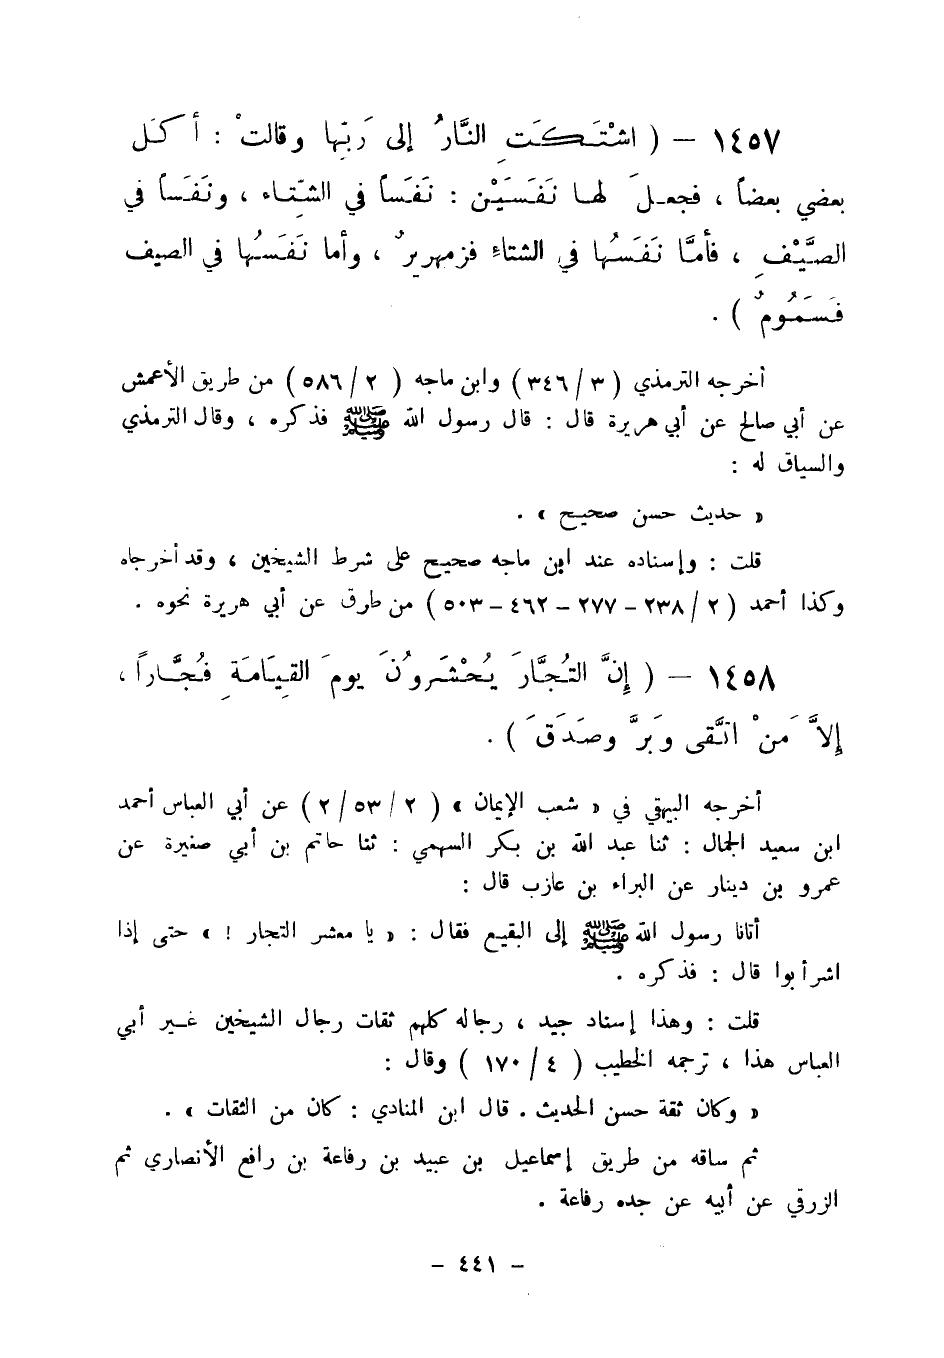 ١٤٥٧ – ( اشْتَكَتِ النَّارُ إلى رَبِّها وقالتْ : أَكَلَ
بعضي بعضاً ، فجعلَ لها نَفَسَيْن : نَفَساً في الشِّتاء ، ونَفَساً في
الصَّيْفِ ، فأمَّا نَفَسُها في الشتاءِ فزمهريرٌ ، وأما نَفَسُها في الصيف
فَسَمُومٌ ) .
أخرجه الترمذي ( ٣ / ٣٤٦ ) وابن ماجه ( ٢ / ٥٨٦ ) من طريق الأعمش
عن أبي صالح عن أبي هريرة قال : قال رسول الله ﷺ فذكره ، وقال الترمذي
والسياق له :
« حديث حسن صحيح » .
قلت : وإسناده عند ابن ماجه صحيح على شرط الشيخين ، وقد أخرجاه
وكذا أحمد ( ٢ / ٢٣٨ – ٢٧٧ – ٤٦٢ – ٥٠٣ ) من طرق عن أبي هريرة نحوه .
١٤٥٨ – ( إِنَّ التُجَّارَ يُحْشَرونَ يومَ القِيَامَةِ فُجَّاراً ،
إلاَّ مَنْ اتَّقى وَبرَّ وصَدَقَ ) .
أخرجه البيهقي في « شعب الإيمان » ( ٢ / ٥٣ / ٢ ) عن أبي العباس أحمد
ابن سعيد الجمال : ثنا عبد الله بن بكر السهمي : ثنا حاتم بن أبي صغيرة عن
عمرو بن دينار عن البراء بن عازب قال :
أتانا رسول الله ﷺ إلى البقيع فقال : « يا معشر التجار ! » حتى إذا
اشرأبوا قال : فذكره .
قلت : وهذا إسناد جيد ، رجاله كلهم ثقات رجال الشيخين غير أبي
العباس هذا ، ترجمه الخطيب ( ٤ / ١٧٠ ) وقال :
« وكان ثقة حسن الحديث . قال ابن المنادي : كان من الثقات » .
ثم ساقه من طريق إسماعيل بن عبيد بن رفاعة بن رافع الأنصاري ثم
الزرقي عن أبيه عن جده رفاعة .
– ٤٤١ –